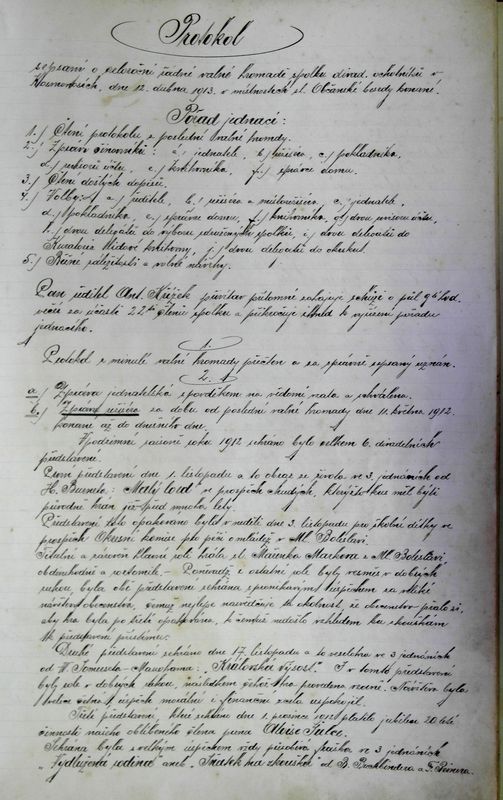 Protokol
sepsaný o celoroční řádné valné hromadě spolku divad. ochotníků v
Kosmonosích, dne 12. dubna 1913. v místnostech sl. Občanské besedy konané.
Pořad jednací:
1.) Čtení protokolu z poslední valné hromady.
2.) Zpráva činovníků: a.) jednatele, b.) režiséra, c.) pokladníka,
d.) revisorů účtů, e.) knihovníka, f.) správce domu.
3.) Čtení došlých dopisů.
4.) Volby: a.) ředitele, b.) režiséra a místorežiséra, c.) jednatele,
d.) pokladníka, e.) správce domu, f.) knihovníka, g.) dvou revisorů účtů,
h.) dvou delegátů do výboru sdružených spolků, i.) dvou delegátů do
Kuratoria lidové knihovny, j.) dvou delegátů do okrsku.
5.) Různé záležitosti a volné návrhy.
Pan ředitel Ant. Křížek přivítav přítomné zahajuje schůzi o půl 9té hod.
večer za účasti 22 členů spolku a přikračuje ihned k vyřízení pořadu
jednacího.
1.
Protokol z minulé valné hromady přečten a za správně sepsaný uznán.
2.
a.) Zpráva jednatelská s povděkem na vědomí vzata a schválena.
b.) Zpráva režiséra za dobu od poslední valné hromady dne 11. května 1912.
konané až do dnešního dne.
V podzimní saisoně roku 1912 sehráno bylo celkem 6. divadelních
představení.
První představení dne 1. listopadu a to obraz ze života ve 3. jednáních od
H. Burneta: Malý lord ve prospěch chudých, kterýžto kus měl býti
původně hrán již před mnoha lety.
Představení toto opakováno bylo v neděli dne 3. listopadu pro školní dítky ve
prospěch Okresní komise pro péči o mládež v Ml. Boleslavi.
Titulní a zároveň hlavní roli hrála sl. Mařenka Markova z Ml. Boleslavi
obdivuhodně a roztomile. – Poněvadž i ostatní role byly vesměs v dobrých
rukou, byla obě představení sehrána s pronikavým úspěchem za veliké
návštěvy obecenstva, čemuž nejlépe nasvědčuje ta okolnost, že obecenstvo přálo si,
aby hra byla po třetí opakována, k čemuž nedošlo vzhledem ku zkouškám
k představení příštímu.
Druhé představení sehráno dne 17. listopadu a to veselohra ve 3 jednáních
od
"Královská výsost". I v tomto představení
byly role v dobrých rukou, následkem čehož hra provedena vzorně. Návštěva byla
úspěch morální i finanční zcela uspokojil.
Třetí představení, které sehráno dne 1. prosince 1912 platilo jubileu 20 leté
činnosti našeho oblíbeného člena pana Aloise Šulce.
Sehrána byla s velkým úspěchem vždy působivá fraška ve 3 jednáních
od B.